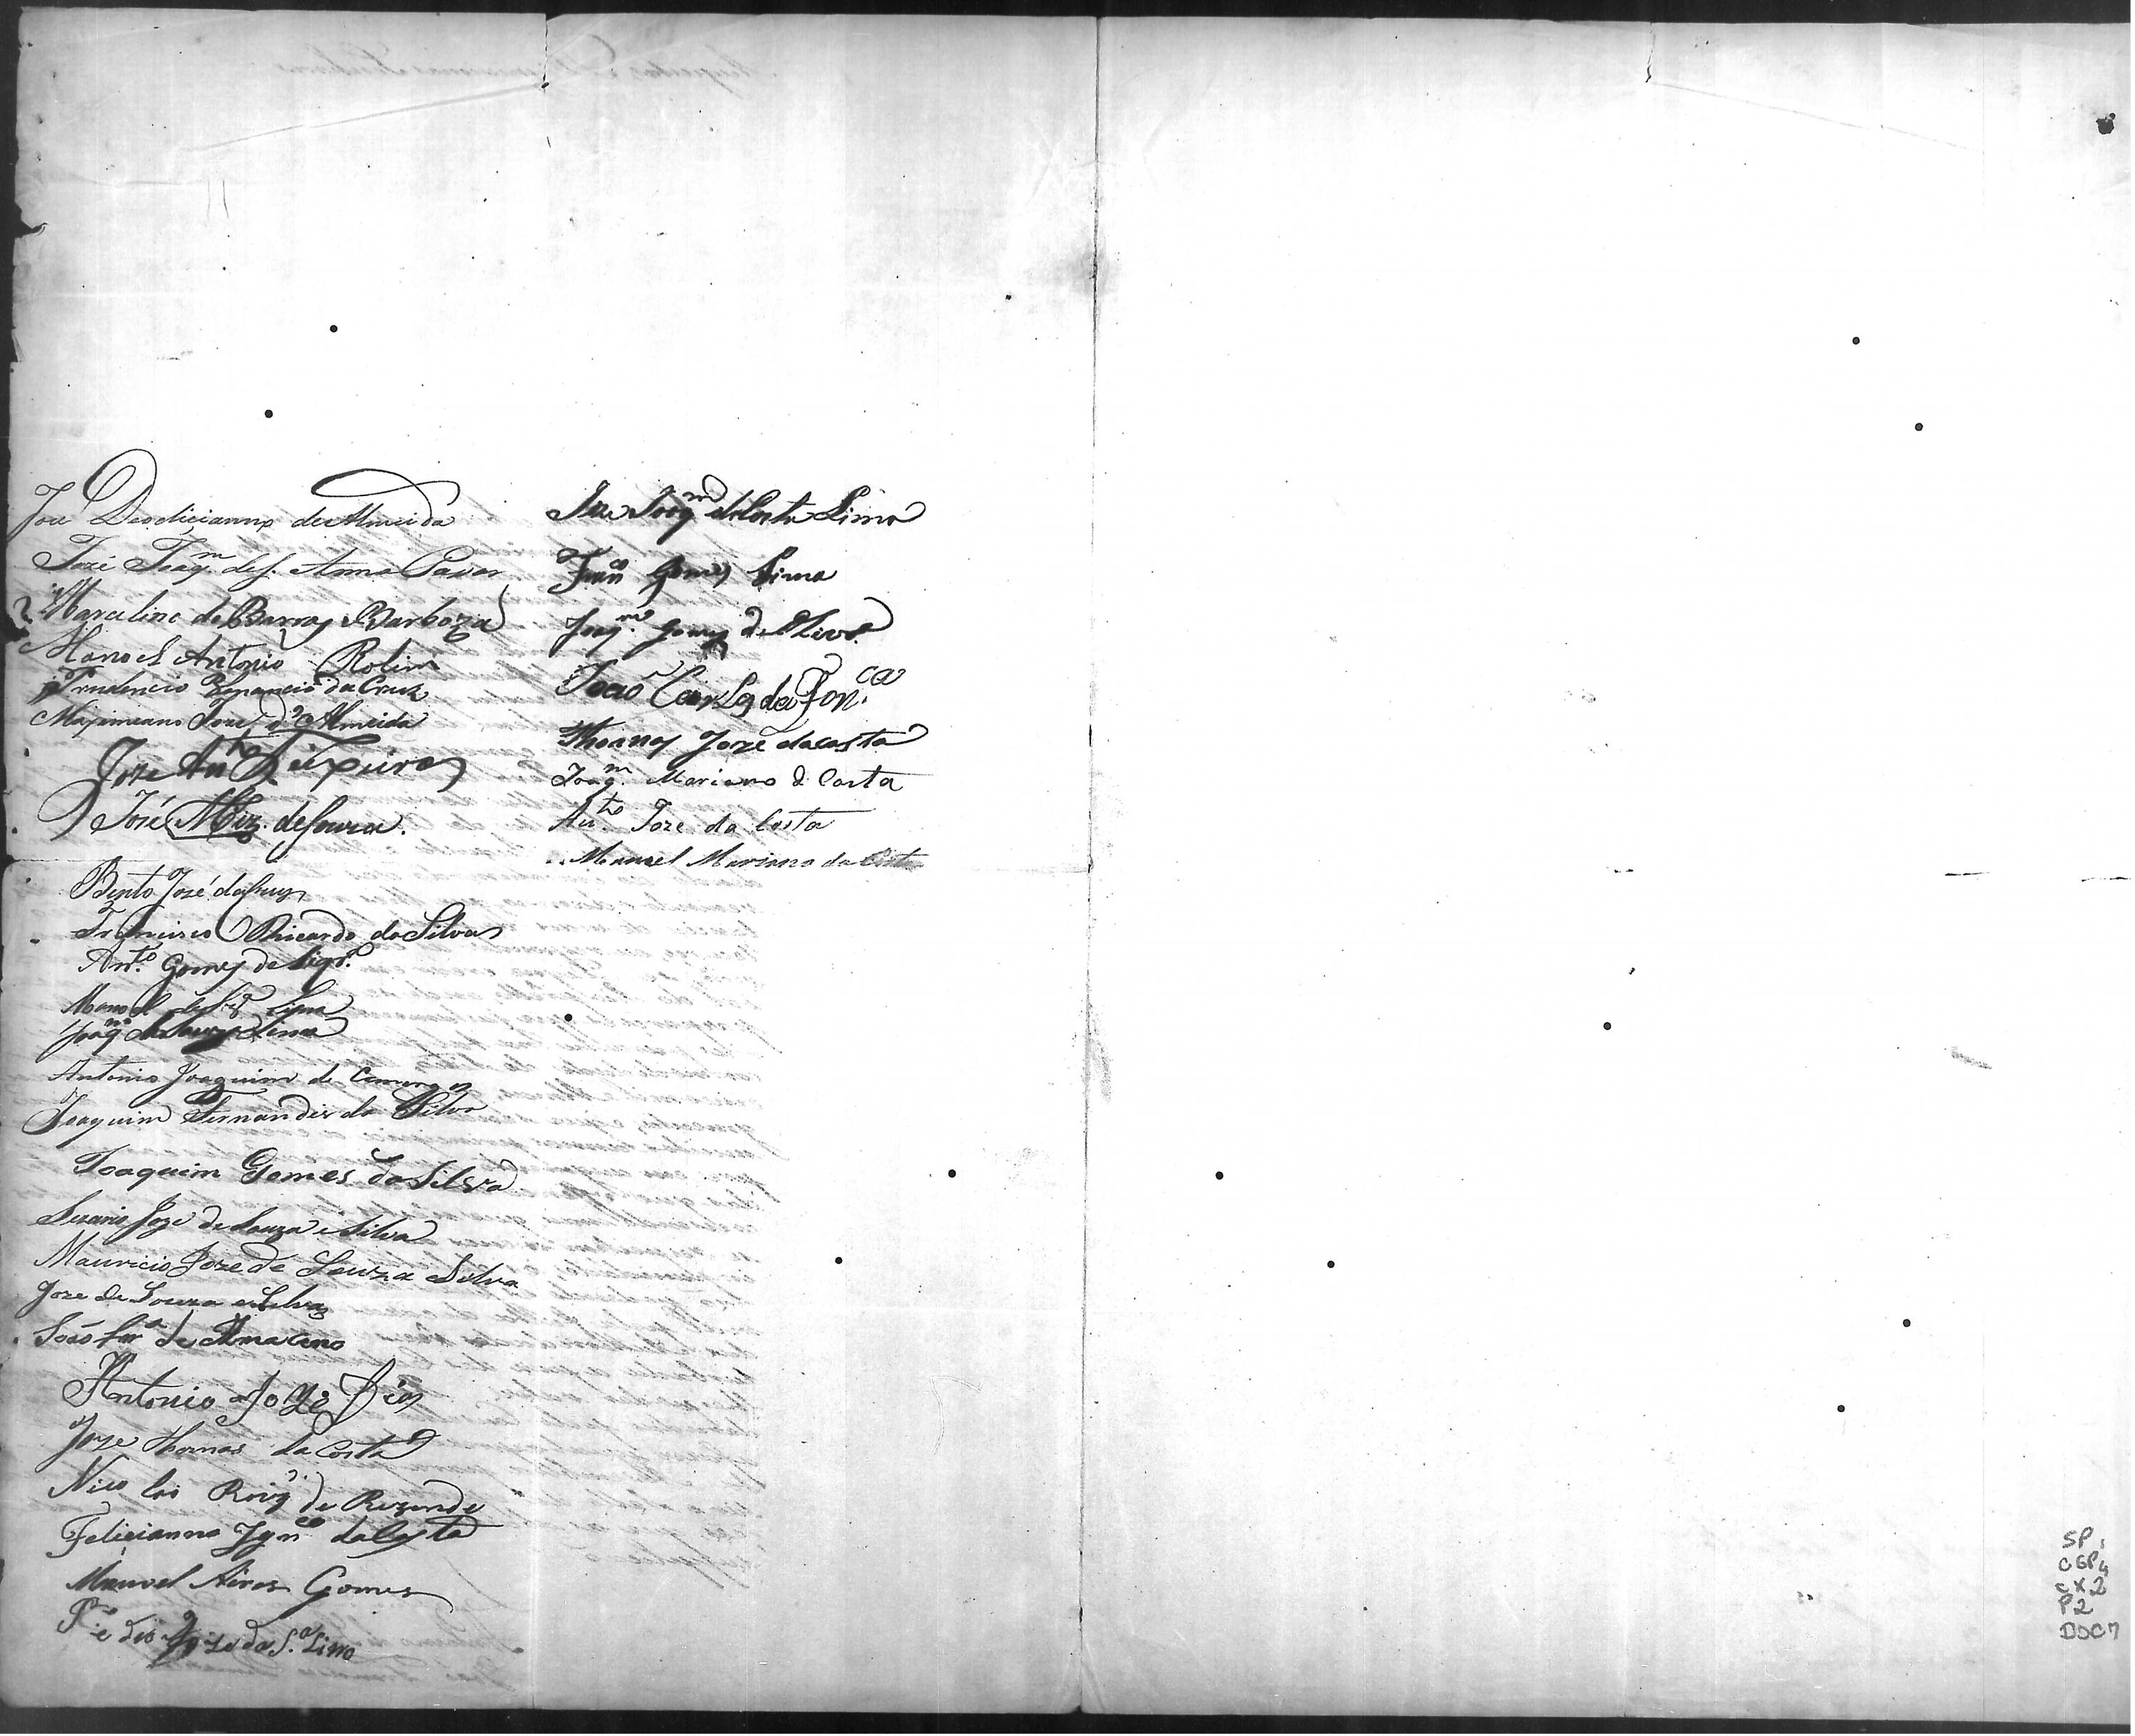 José Deodicianno de Almeida
José Joaqm. de S. Anna
Marcelino de Barros Barboza
Manoel Antonio Rolim
Prudencio Venancio da Cruz
Maximiano Joze d'Almeida
Joze Anto Teixeira
José Miz. de Souza.
Bento José da Cruz
Francisco Ricardo da Silva
Anto. Gomes de
Manoel Lima
Joaqm Lima
Antonio Joaquim de Camargo
Joaquim Fernandes da Silva
Joaquim Gomes da Silva
Joze de Souza e Silva
Mauricio Joze de Souza e Silva
Joze de Souza e Silva
João de
Antonio Joze Dias
Joze Thomas da Costa
Nicolao Roiz de Rezende
Felicianno Ignco da Costa
Manoel Aires Gomes
Joze da Sa. Lima
Joze Joaqm da Costa Lima
Franco Gomes Lima
Joaqm. Gomes de Olivra.
João Carlos da Fonca.
Thomas Joze da Costa
Joaqm. Mariano da Costa
Anto. Joze da Costa
Manoel Mariano da Costa
SP
CGP4
CX.2
P2
DOC7